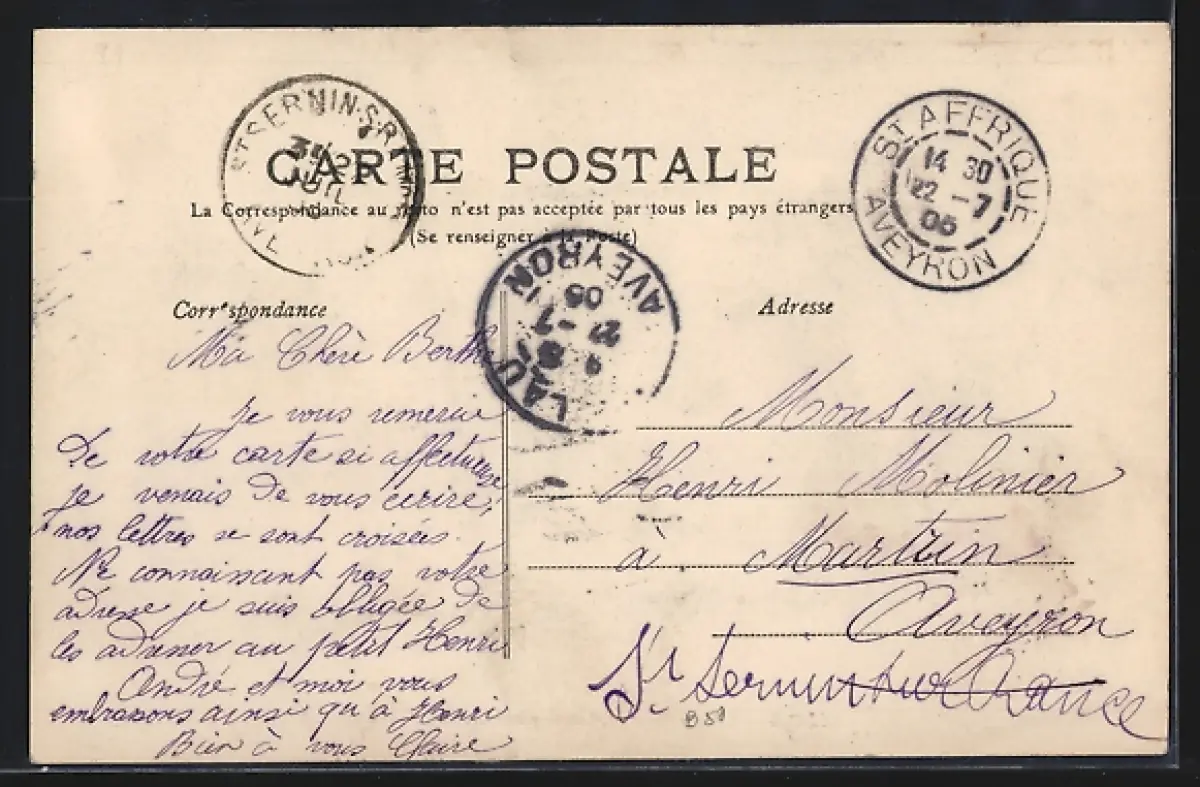 CARTE POSTALE
La Correspondance au recto n'est pas acceptée par tous les pays étrangers
(Se renseigner à la Poste)
ST SERNIN-S-R
ST AFFRIQUE
14 30
22 -7
05
AVEYRON
AVEYRON
05
-7
LAU
Correspondance
Ma Chère Berthe
Je vous remercie
De votre carte si affectueuse
je venais De vous ecrire,
nos lettres se sont croisées.
Ne connaissant pas votre
adresse je suis obligée De
les adresser au petit Henri
André et moi vous
embrassons ainsi qu'à Henri
Bien à vous Claire
Adresse
Monsieur
Henri Molinier
à Martrin
Aveyron
St Sernin sur Rance
B50